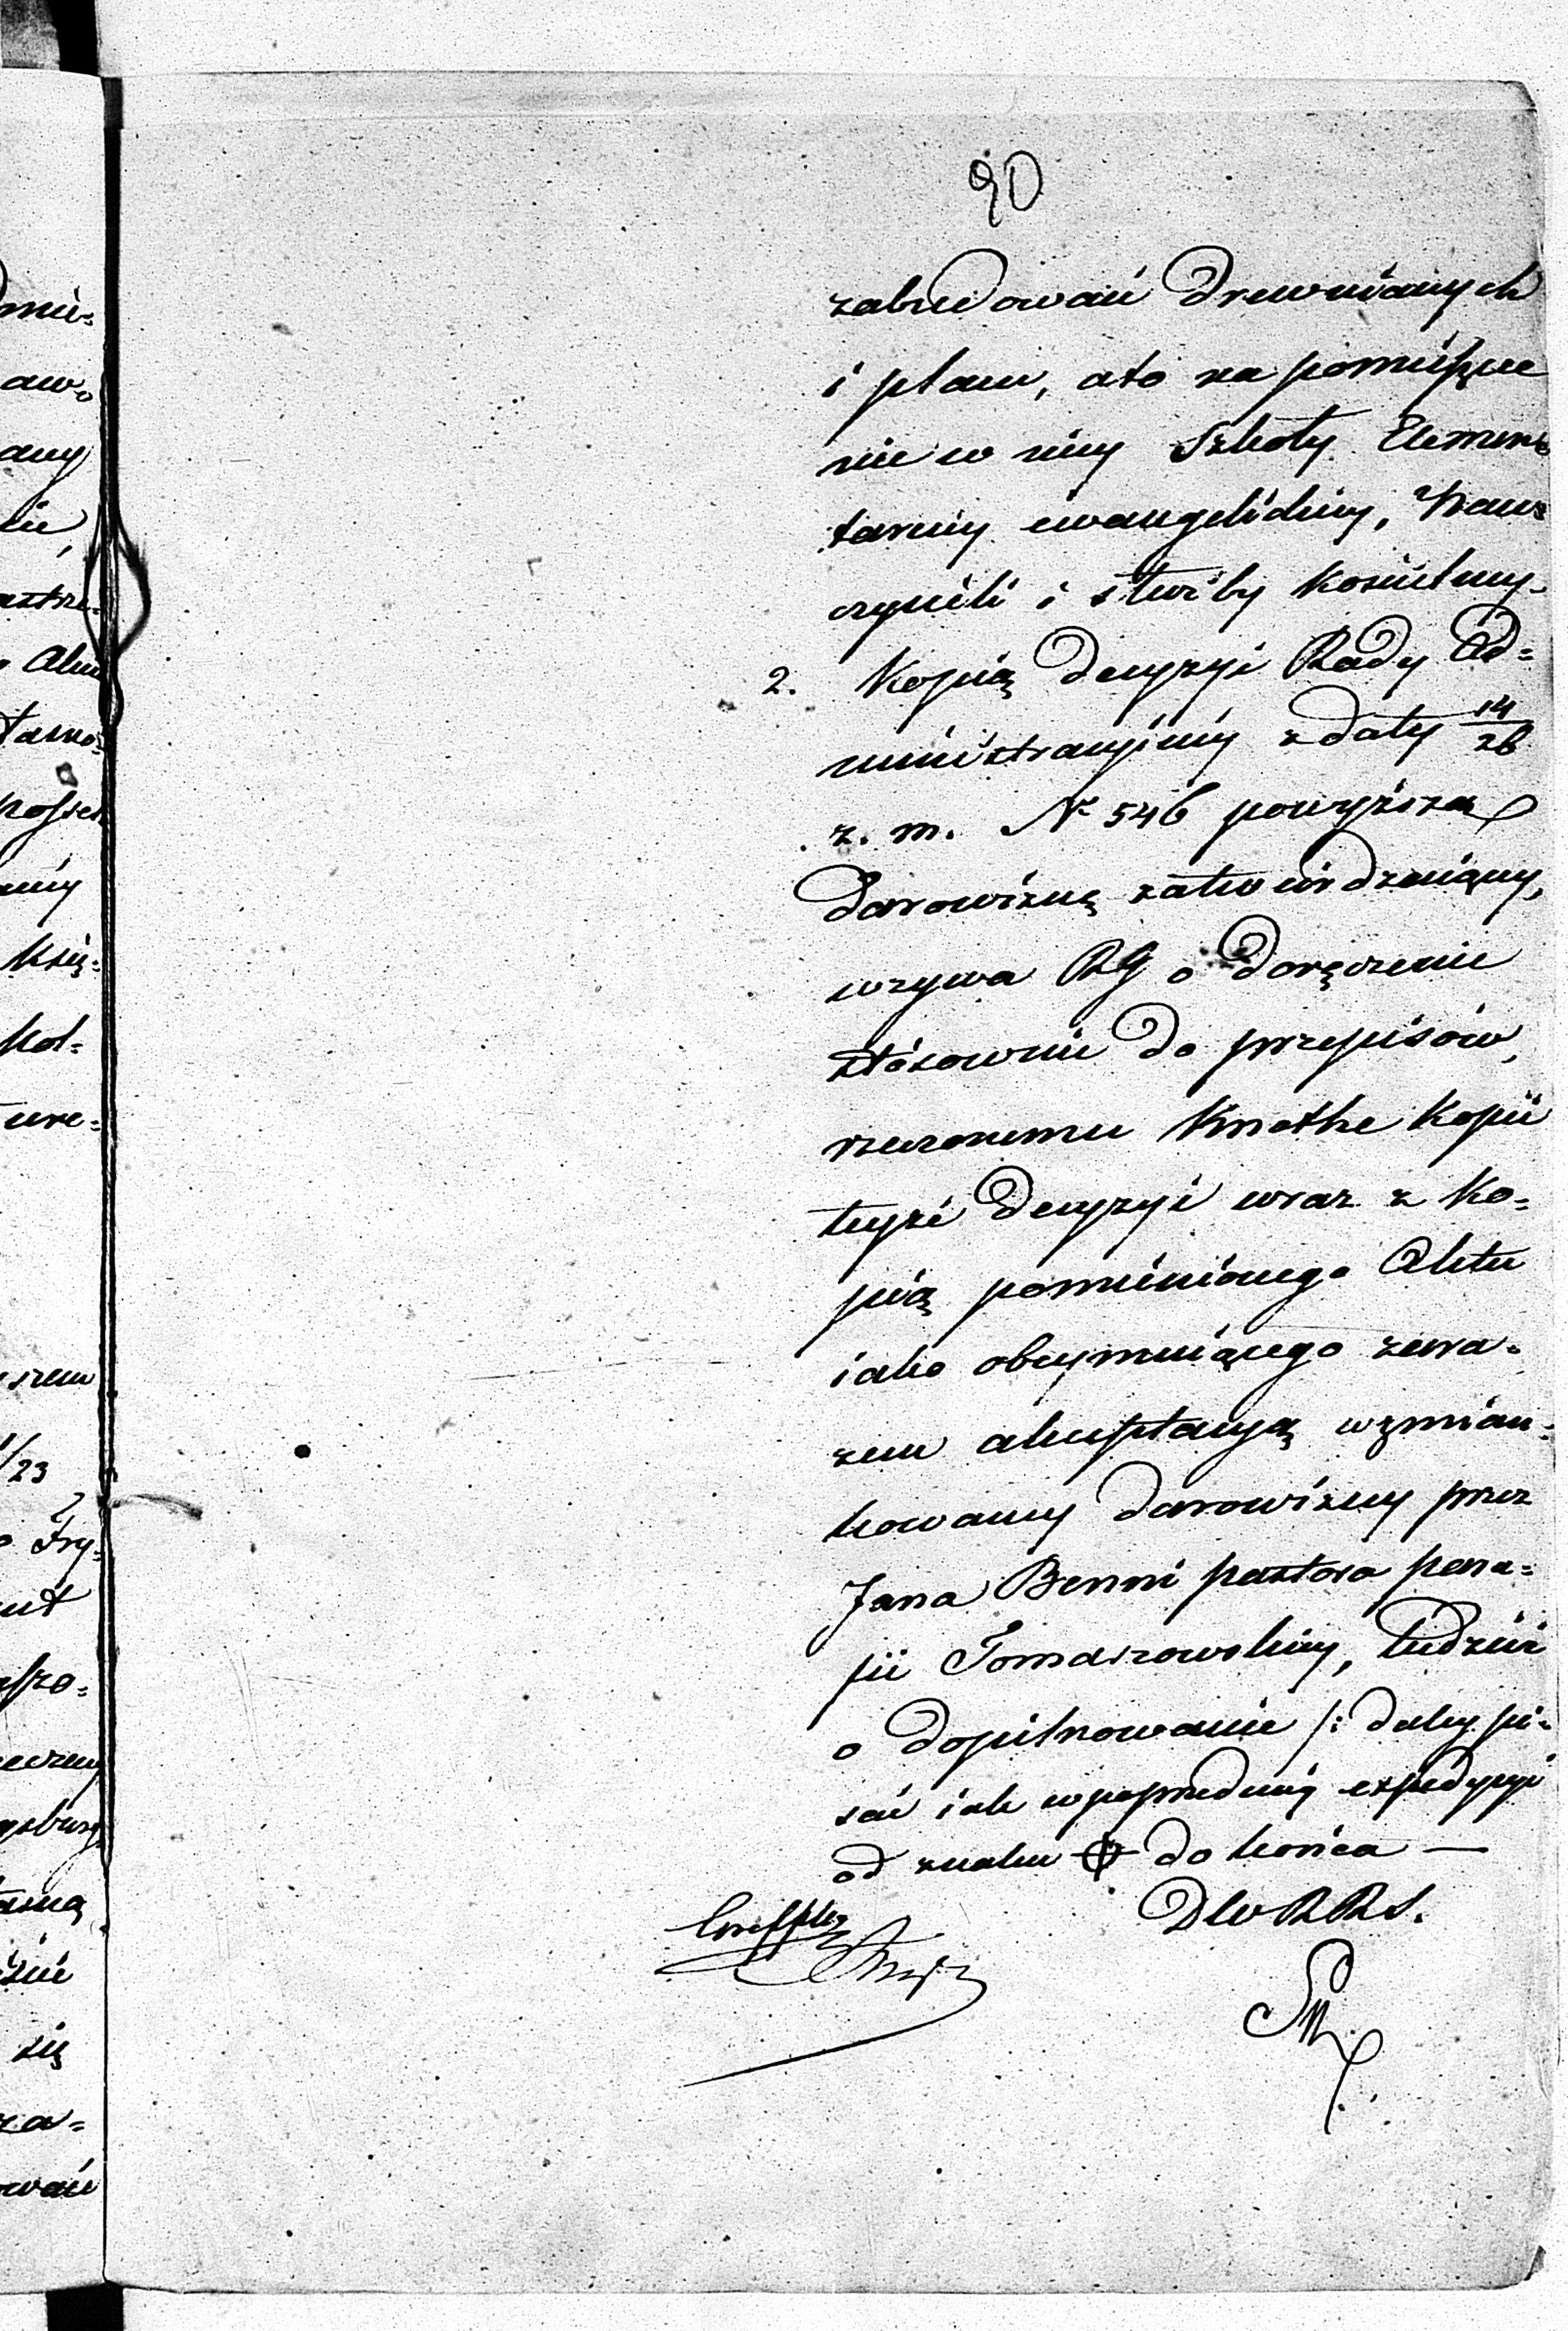 90
zabudowań drewnianych
i placu, a to na pomieszcze
nie w niey Szkoły Elemen=
tarney ewangelickiey, Nau=
czycieli i służby kościelney.
2. Kopią decyzyi Rady Ad=
ministracyiney z daty 14/26
z. m. N° 546 powyższą
darowiznę zatwierdzaiącey,
wzywa RG o doręczenie
stósownie do przepisów,
rzeczonemu Knothe kopii
teyże decyzyi wraz z ko=
pią pomienionego Aktu
iako obeymuiącego zara=
zem akceptacyą wzmian=
kowaney darowizny przez
Jana Benni pastora para=
fii Tomaszowskiey, tudzież
o dopilnowanie /: daley pi=
sać iak w poprzedniey expedycyi
od znaku ⌽ do końca —
D W R R S.
mie=
aw=
any
nie,
Aktu
księ=
kol=
ure=
szem
/23
Fry=
wań
się
za=